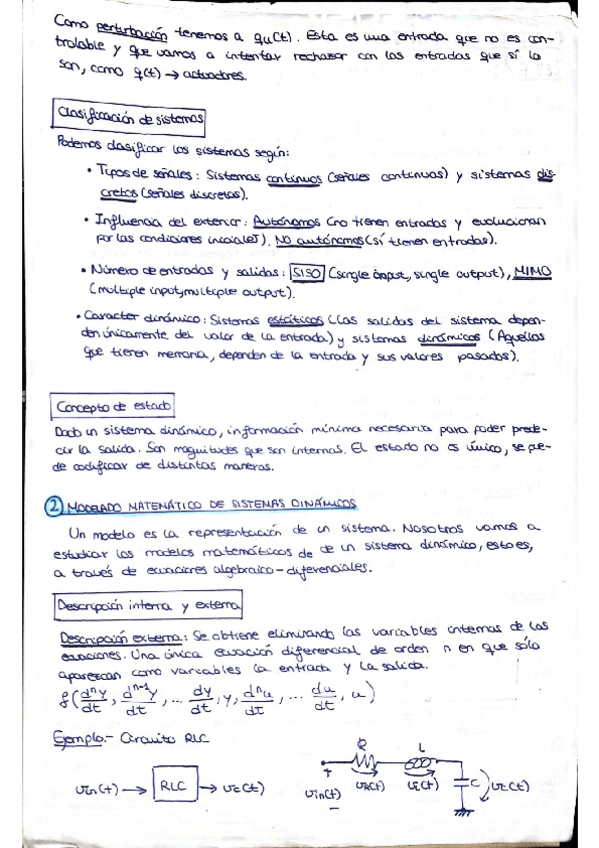 Como perturbación tenemos a qu(t). Esta es una entrada que no es con-
trolable y que vamos a intentar rechazar con las entradas que sí lo
son, como q(t) → actuadores.
Clasificación de sistemas
Podemos clasificar los sistemas según:
• Tipos de señales: Sistemas continuos (señales continuas) y sistemas dis-
cretos (señales discretas).
• Influencia del exterior: Autónomos (no tienen entradas y evolucionan
por las condiciones iniciales). NO autónomos (sí tienen entradas).
• Número de entradas y salidas: SISO (single input, single output), MIMO
(multiple input, multiple output).
• Caracter dinámico: Sistemas estáticos (las salidas del sistema depen-
den únicamente del valor de la entrada) y sistemas dinámicos (Aquellos
que tienen memoria, dependen de la entrada y sus valores pasados).
Concepto de estado
Dado un sistema dinámico, información mínima necesaria para poder prede-
cir la salida. Son magnitudes que son internas. El estado no es único, se pue-
de codificar de distintas maneras.
2 MODELADO MATEMÁTICO DE SISTEMAS DINÁMICOS
Un modelo es la representación de un sistema. Nosotros vamos a
estudiar los modelos matemáticos de de un sistema dinámico, esto es,
a través de ecuaciones algebraico-diferenciales.
Descripción interna y externa
Descripción externa: Se obtiene eliminando las variables internas de las
ecuaciones. Una única ecuación diferencial de orden n en que sólo
aparezcan como variables la entrada y la salida.
f(dⁿy/dt, dⁿ⁻¹y/dt, ... dy/dt, y, dⁿu/dt, ... du/dt, u)
Ejemplo.- Circuito RLC
Vin(t) → RLC → Vc(t)
R L
+ Vin(t) - VR(t) VL(t) C Vc(t)